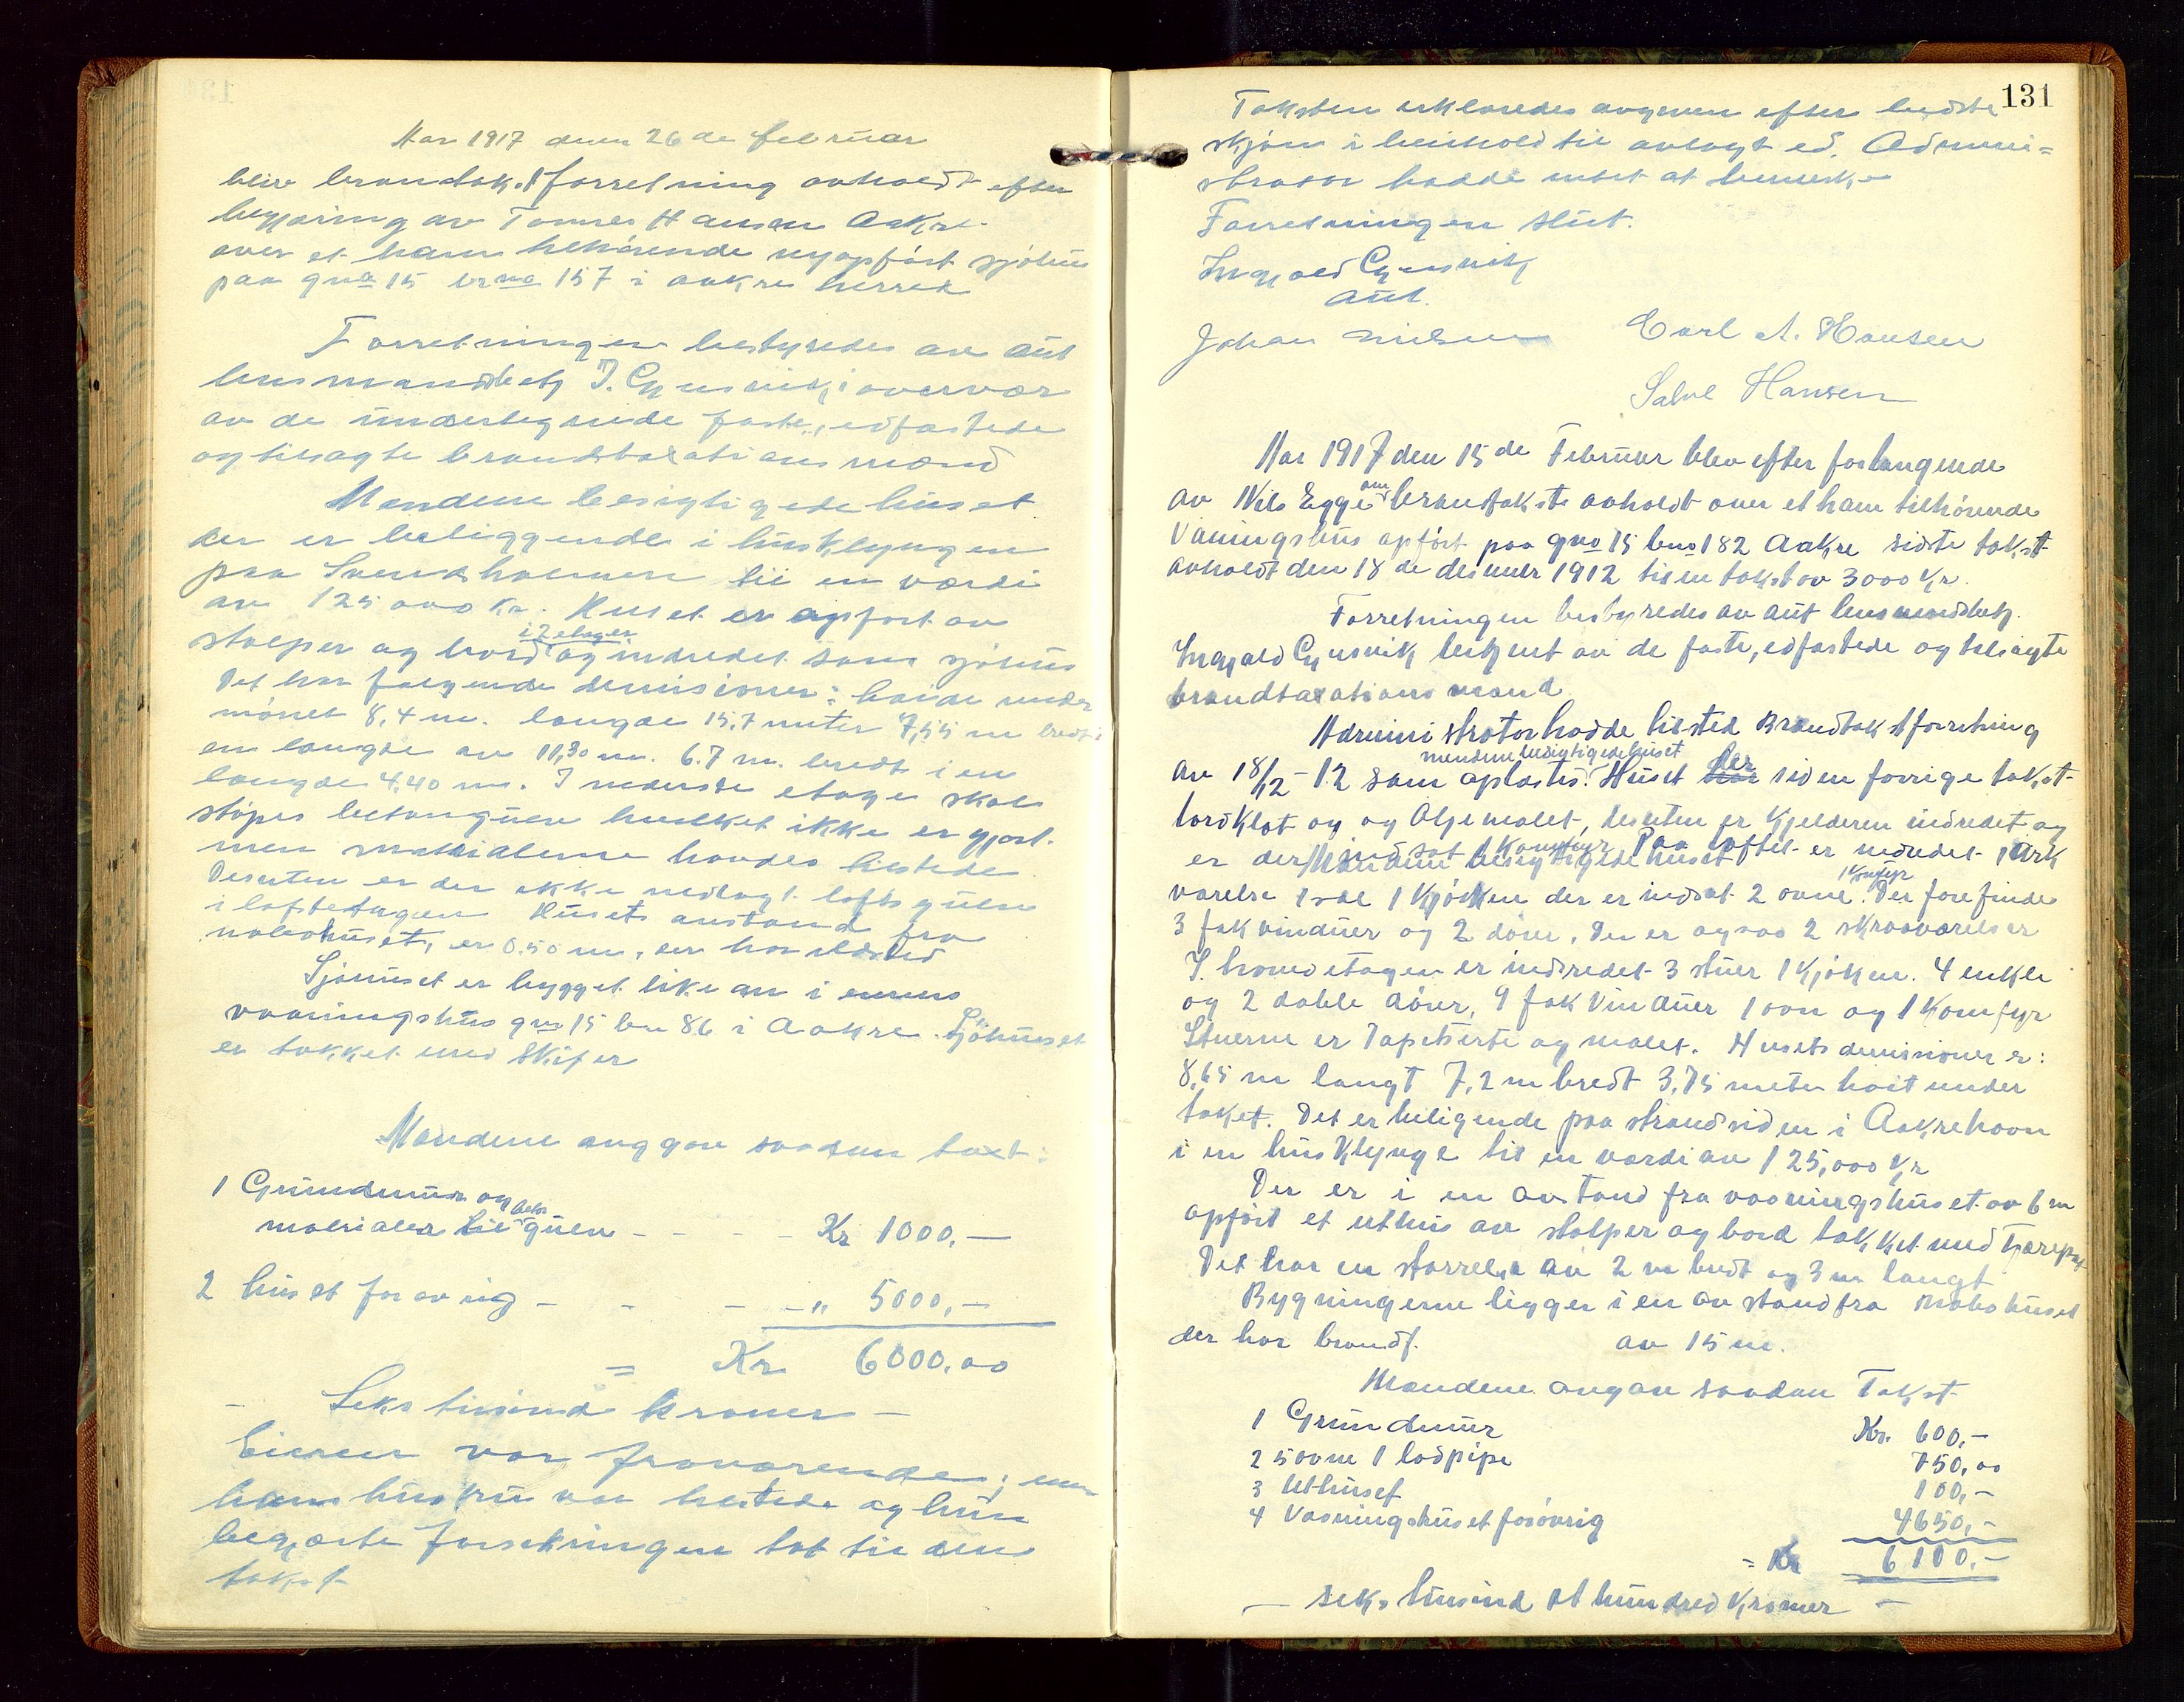 Aar 1917 denn 26 de februar
blev brandtakstforretning avholdt efter
begjæring av Tonnes Hansen Aakre
over et ham tilhörende nyopfört sjöhus
paa gno 15 brno 157 i aakre herred
Forretningen bestyredes av aut
lensmandsbetj J. Gjensvik, i overvær
av de undertegnede faste, edfæstede
og tilsagte brandtaxations mænd
Mændene besigtigede huset
der er beliggende i husklyngen
paa til en værdi
av 125000 kr. Huset er opfört av
i 2 etager
stolper og bord og indredet som sjöhus
Det har fölgende demisioner: höide under
mönet 8,4 m. længde 15,7 meter 7,55 m bredt i
en længde av 11,30 m. 6.7 m. bredt i en
længde 4,40 m. I nederste etage skal
stöpes betongulv hvilket ikke er gjort.
men materialerne havdes tilstede.
Desuten er der ikke nedlagt loftsgulv
i loftsetagen Husets avstand fra
nabohuset, er 0.50 m, der har ildsted
Sjöhuset er bygget like an i
vaaningshus gno 15 bn 86 i Aakre. Sjöhuset
er tækket med Skifer
Mændene avggav saadan taxt:
1 Grundmur og
beton
materialer til gulv - - - - Kr 1000,—
2 huset forøvrig - - - - " 5000,—
= Kr 6000,00
- Seks tusind kroner —
Eieren var fraværende; men
hans hustru var tilstede og hun
begjærte forsikringen tat til den
takst
131
Taksten erklæredes avgiven efter bedste
skjön i henhold til avlagt ed. Admini=
strator hadde intet at bemerke
Forretningen slut.
Ingvald Gjensvik
aut.
Johan Nilsen Carl A. Hansen
Salve Hansen
Aar 1917 den 15 de Februar blev efter forlangende
om
av Nils Egge brandtakst avholdt over et ham tilhörende
Vaaningshus opfört paa gno 15 bno 182 Aakre sidste takst
avholdt den 18 de desember 1912 til en takst av 3000 kr.
Forretningen bestyredes av aut lensmandsbetj.
Ingvald Gjensvik betjent av de faste, edfæstede og tilsagte
brandtaxations mænd
Administrator hadde tilsted Brandtakstforretning
mændene besigtigede huset
av 18/12-12 som oplæstes. Huset har der siden forrige takst
bordklæt og og Oljemalet, desuten er kjelderen indredet og
er der indsat 1 Komfyr Paa loftet er indredet 1 ark
Mændene besigtigede huset
1 Komfyr
værelse 1 sal 1 kjökken der er indsat 2 ovne. Der forefindes
3 fak vinduer og 2 döre. Der er ogsaa 2 skraaværelser
I hovedetagen er indredet 3 stuer 1 Kjökken. 4 enkle
og 2 doble dörer, 9 fak Vinduer 1 ovn og 1 Komfyr
Stuerne er Tapetserte og malet. Husets demisioner er:
8,65 m langt 7,2 m bredt 3,75 meter höit under
taket. Det er beligende paa strandsiden i Aakrehavn
i en husklynge til en værdi av 125,000 Kr
Der er i en avstand fra vaaningshuset av 6 m
opfört et uthus av stolper og bord tækket med Tjærepap
Det har en störrelse av 2 m bredt og 3 m langt
Bygningerne ligger i en avstand fra Nabohuset
der har brandf. av 15 m.
Mændene avgav saadan Takst
1 Grundmur Kr. 600,-
2 5 ovne 1 lodpipe 750,00
3 Uthuset 100,-
4 Vaaningshuset forövrig 4650,-
= Kr 6100.-
— seks tusind et hundred Kroner —